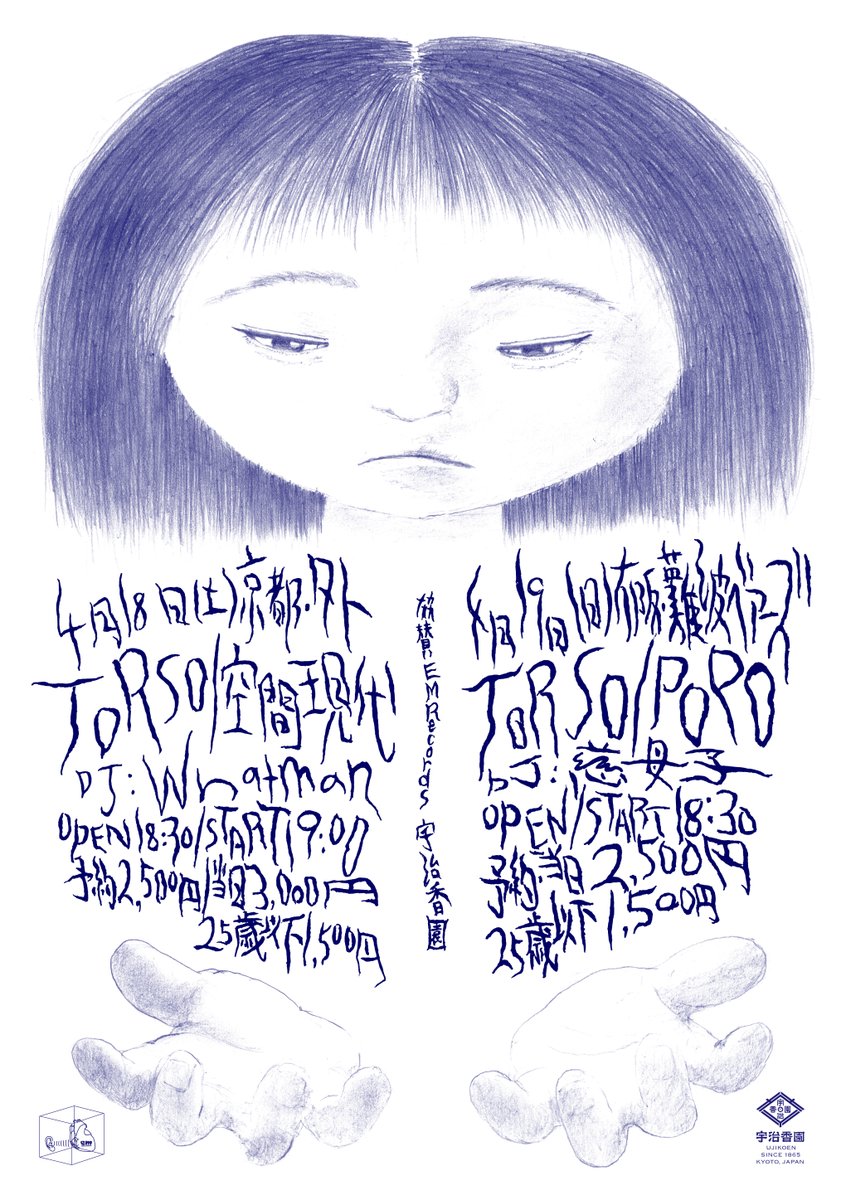 4月18日(土)京都・外
TORSO/空間現代
DJ: Whatman
OPEN18:30/START19:00
予約2,500円/当日3,000円
25歳以下1,500円
協賛 EM Records 宇治香園
4月19日(日)大阪・難波ベアーズ
TORSO/PORO
DJ: 慈母子
OPEN/START18:30
予約・当日2,500円
25歳以下1,500円
宇治香園
宇治香園
UJIKOEN
SINCE 1865
KYOTO, JAPAN